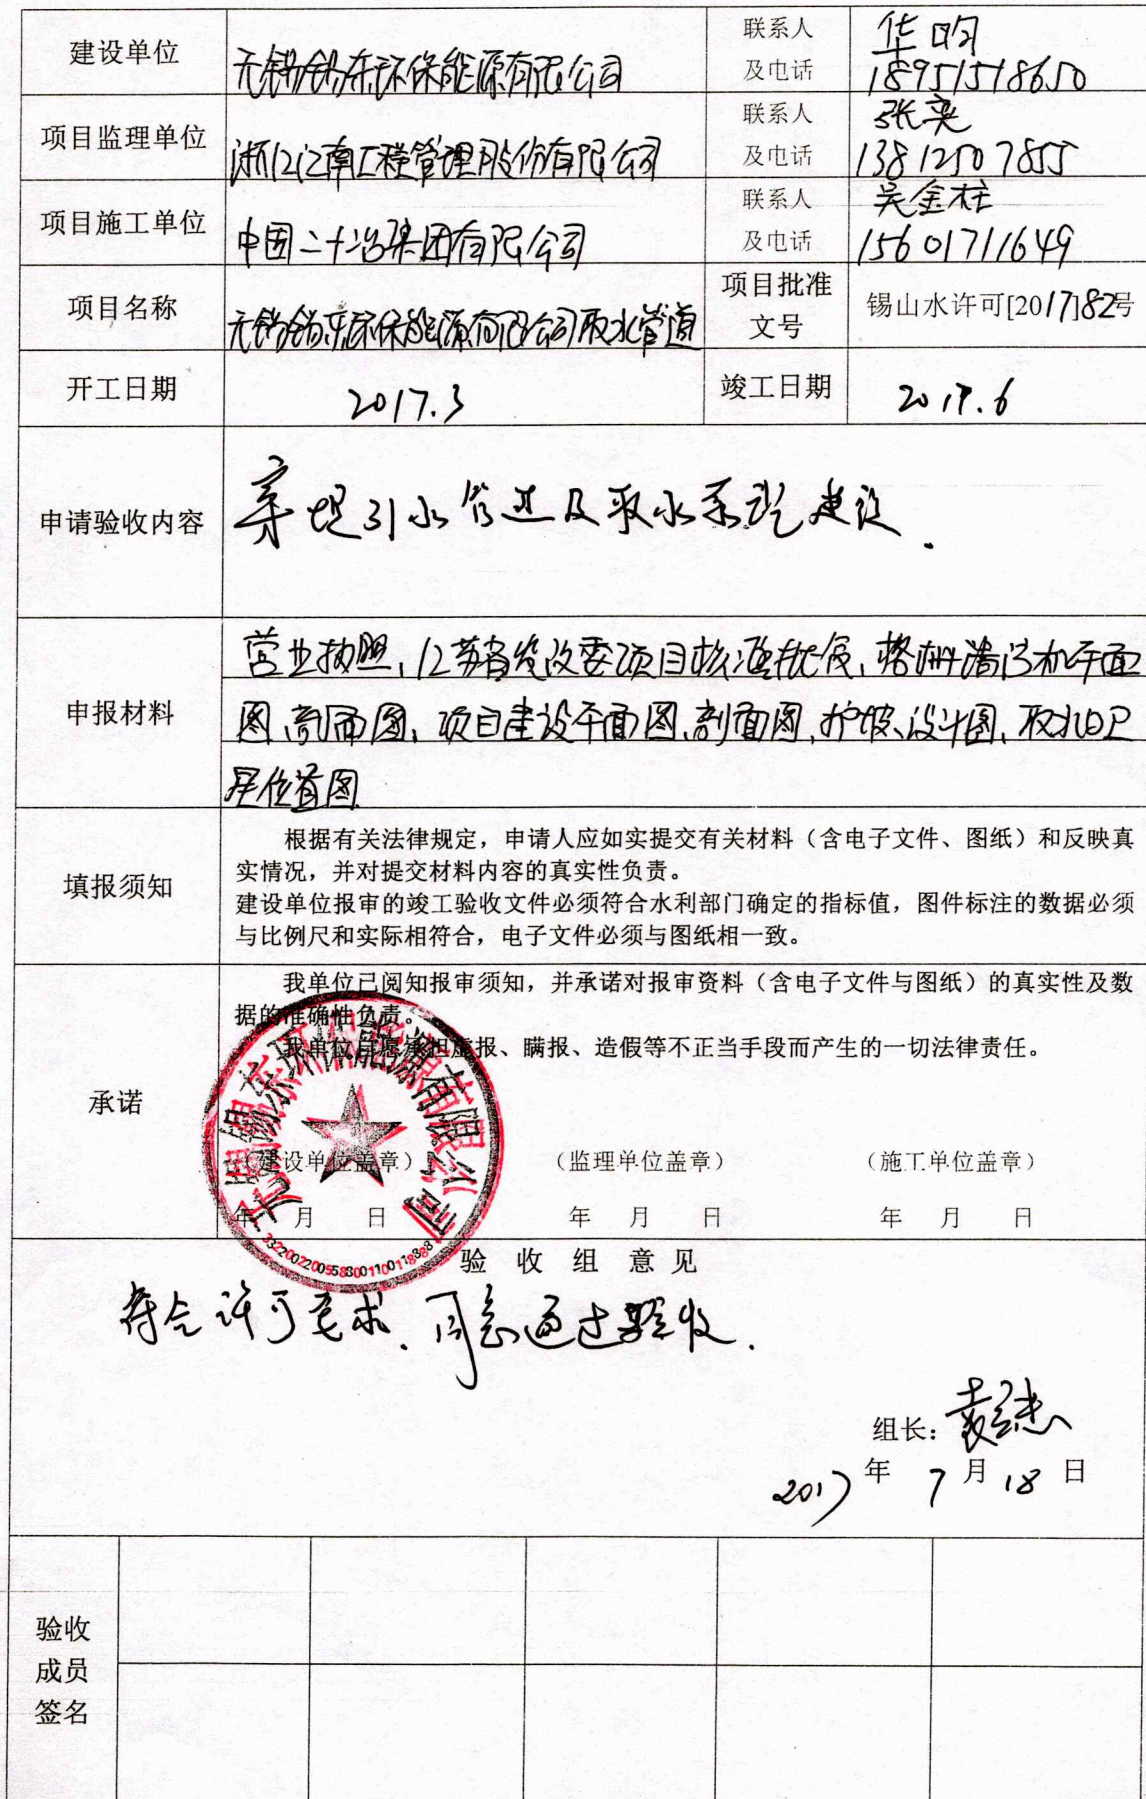 建设单位 无锡锡东环保能源有限公司 联系人 华昀
及电话 18951518650
项目监理单位 浙江江南工程管理股份有限公司 联系人 张奕
及电话 13812507855
项目施工单位 中国二十冶集团有限公司 联系人 吴金柱
及电话 15601711649
项目名称 无锡锡东环保能源有限公司取水管道 项目批准
文号 锡山水许可[2017]82号
开工日期 2017.3 竣工日期 2017.6
申请验收内容 穿堤引水管道及取水系统建设.
申报材料 营业执照、江苏省发改委项目核准批复、格栅清污机平面
图、剖面图、项目建设平面图、剖面图、护坡、设计图、取水口卫
星位置图
填报须知 根据有关法律规定，申请人应如实提交有关材料（含电子文件、图纸）和反映真
实情况，并对提交材料内容的真实性负责。
建设单位报审的竣工验收文件必须符合水利部门确定的指标值，图件标注的数据必须
与比例尺和实际相符合，电子文件必须与图纸相一致。
承诺 我单位已阅知报审须知，并承诺对报审资料（含电子文件与图纸）的真实性及数
据的准确性负责。
我单位自愿承担虚报、瞒报、造假等不正当手段而产生的一切法律责任。
无锡锡东环保能源有限公司
（建设单位盖章） （监理单位盖章） （施工单位盖章）
年 月 日 年 月 日 年 月 日
验收组意见
符合许可要求、同意通过验收.
组长：
2017年7月18日
验收
成员
签名